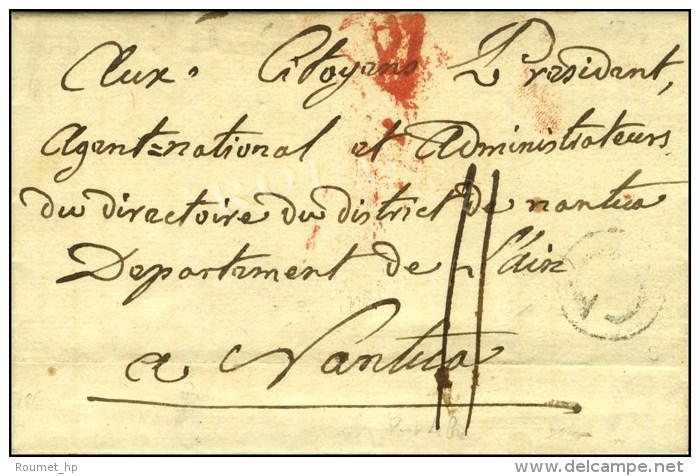 Aux Citoyens President,
Agent=national et administrateurs
du directoire du district de nantua
Department de L'ain
a Nantua
Roumet_hp
delcampe.net